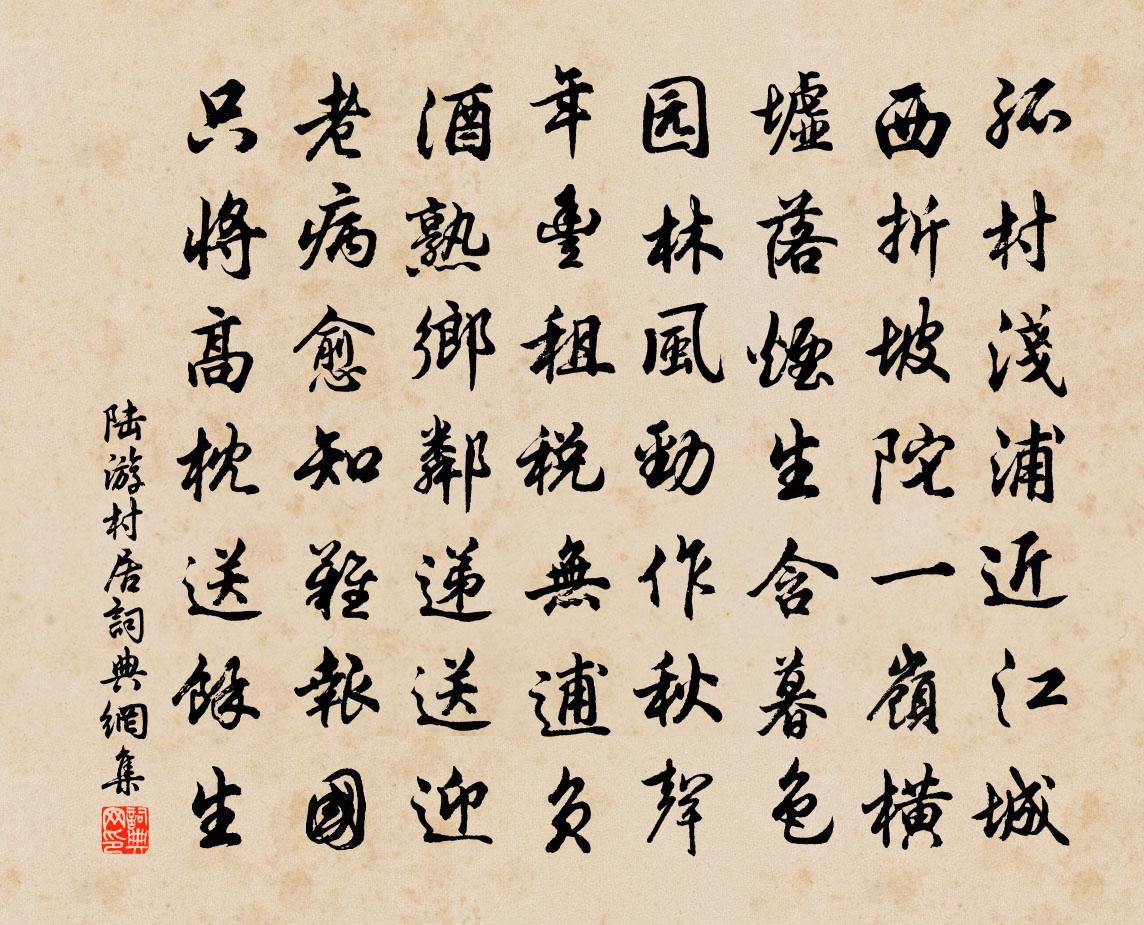 孤村淺浦近江城
西折坡陀一嶺橫
墟落煙生含暮色
园林風勁作秋聲
年豐租税無逋負
酒熟鄉鄰递送迎
老病愈知難報國
只將高枕送餘生
陆游村居詞典網集
詞典网印